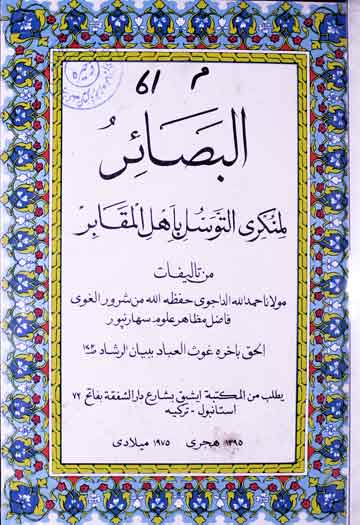 م
61
البصائر
لمنكرى التوسل بأهل المقابر
من تاليفات
مولانا حمد الله الداجوى حفظه الله من شرور الغوى
فاضل مظاهر علوم سهارنپور
الحق باخره غوث العباد ببيان الرشاد
يطلب من المكتبة ايشيق بشارع دار الشفقة بفاتح ٧٢
استانبول - تركيه
١٣٩٥ هجرى ١٩٧٥ ميلادى